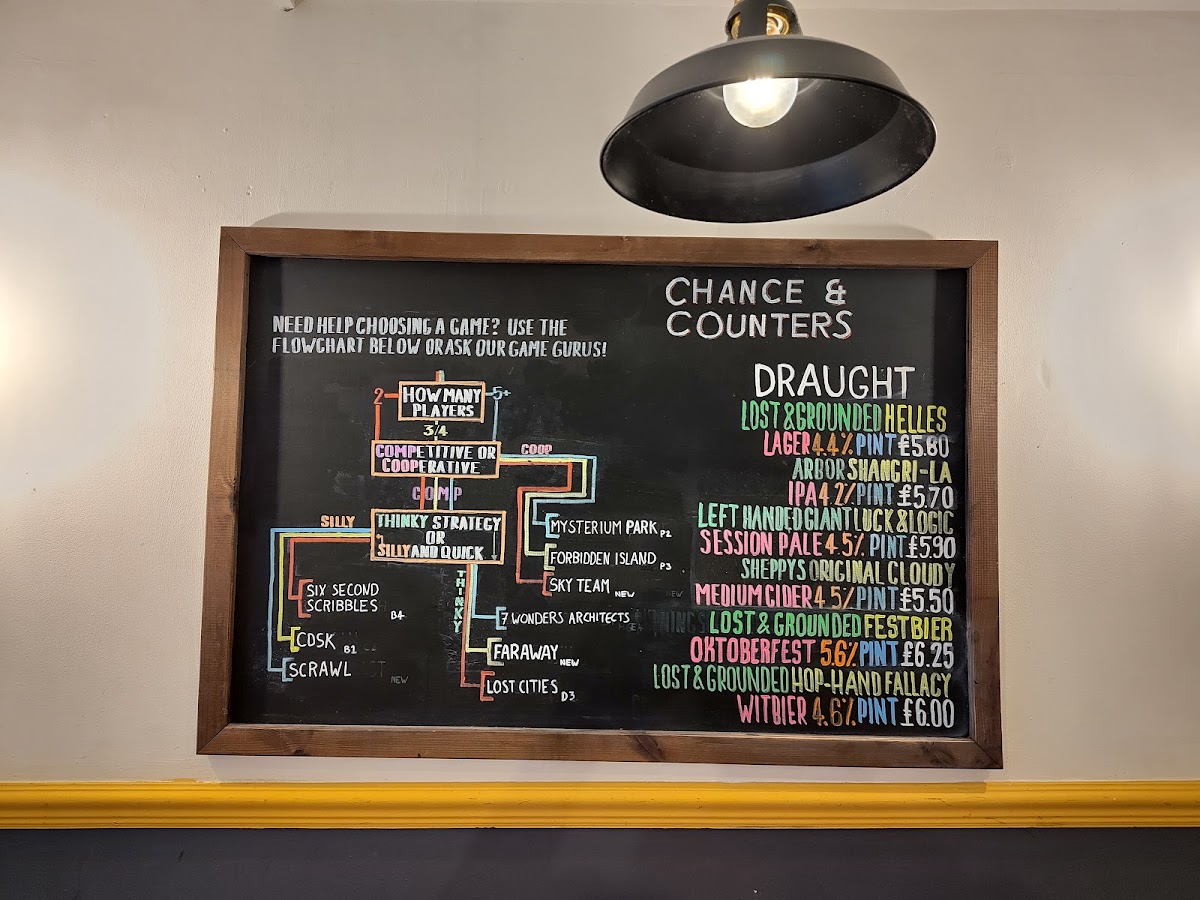 NEED HELP CHOOSING A GAME? USE THE
FLOWCHART BELOW OR ASK OUR GAME GURUS!
2
HOW MANY
PLAYERS
5+
3/4
COMPETITIVE OR
COOPERATIVE
COOP
COMP
SILLY
THINKY STRATEGY
OR
SILLY AND QUICK
THINKY
MYSTERIUM PARK P2
FORBIDDEN ISLAND P3
SKY TEAM NEW
SIX SECOND
SCRIBBLES B4
CDSK B2
SCRAWL NEW
7 WONDERS ARCHITECTS
FARAWAY NEW
LOST CITIES D3
CHANCE &
COUNTERS
DRAUGHT
LOST & GROUNDED HELLES
LAGER 4.4% PINT £5.80
ARBOR SHANGRI-LA
IPA 4.2% PINT £5.70
LEFT HANDED GIANT LUCK & LOGIC
SESSION PALE 4.5% PINT £5.90
SHEPPYS ORIGINAL CLOUDY
MEDIUM CIDER 4.5% PINT £5.50
LOST & GROUNDED FESTBIER
OKTOBERFEST 5.6% PINT £6.25
LOST & GROUNDED HOP-HAND FALLACY
WITBIER 4.6% PINT £6.00